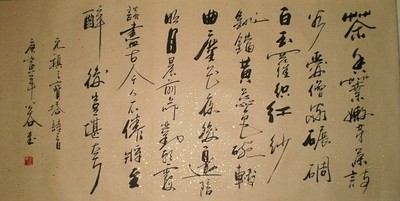 茶香葉嫩芽慕詩
客愛僧家碾雕
白玉羅織紅紗
銚煎黃蕊色碗轉
曲塵花夜後邀陪
明月晨前命對朝霞
洗盡古今人不倦將至
醉後豈堪誇
元稹之寶塔詩
庚寅年